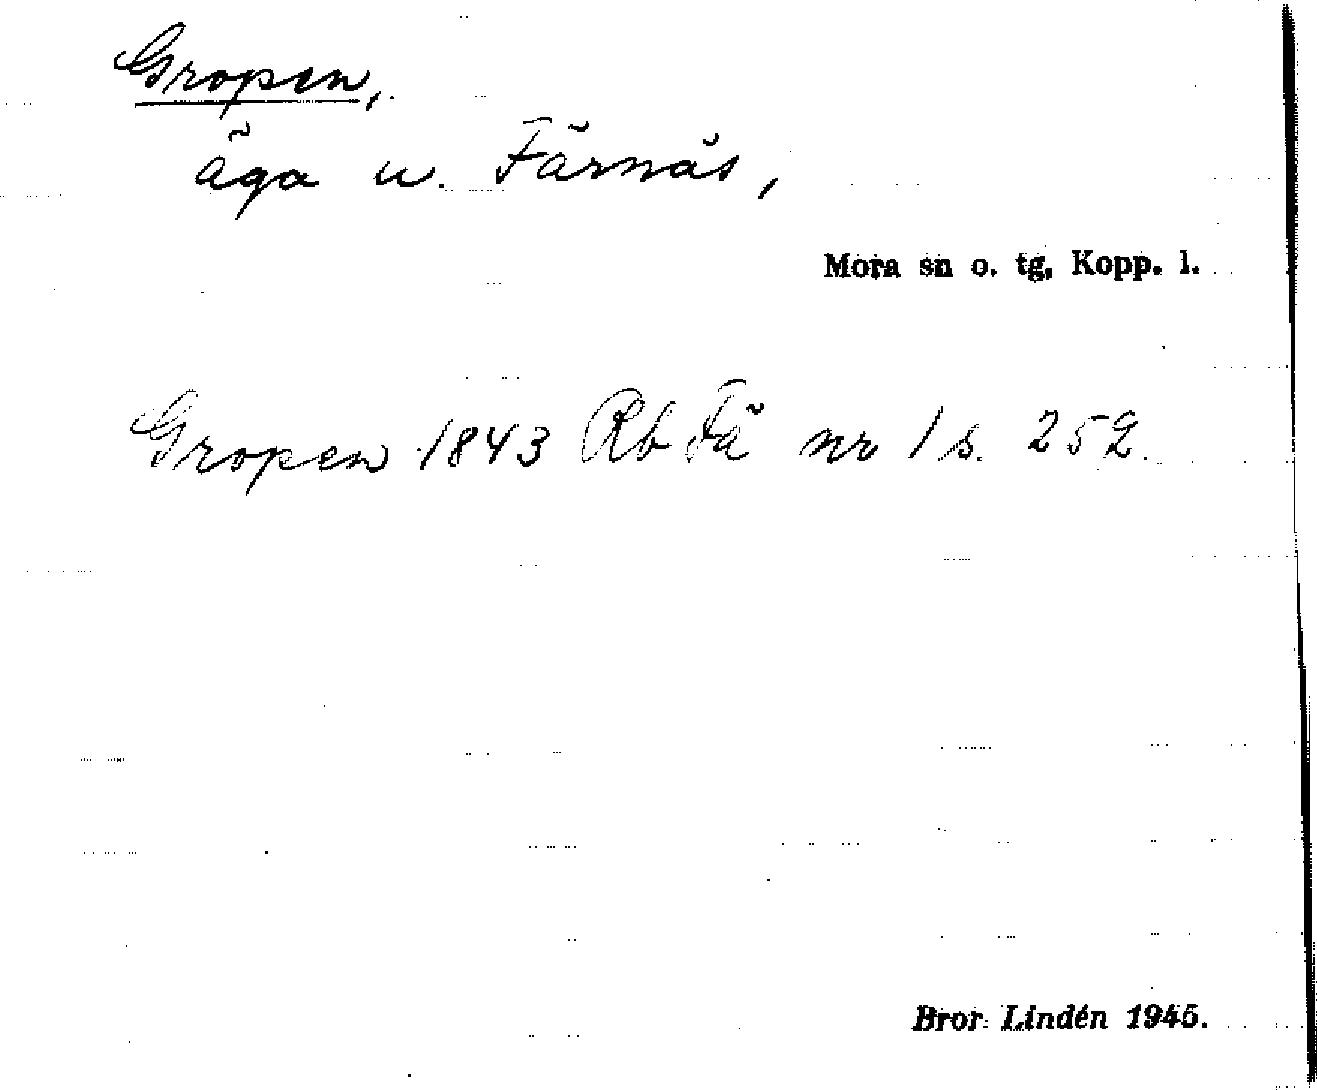 Gropen,
äga u. Färnäs,
Mora sn o. tg, Kopp. l.
Gropen 1843 Rb Fä nr 1 s. 252.
Bror Lindén 1945.